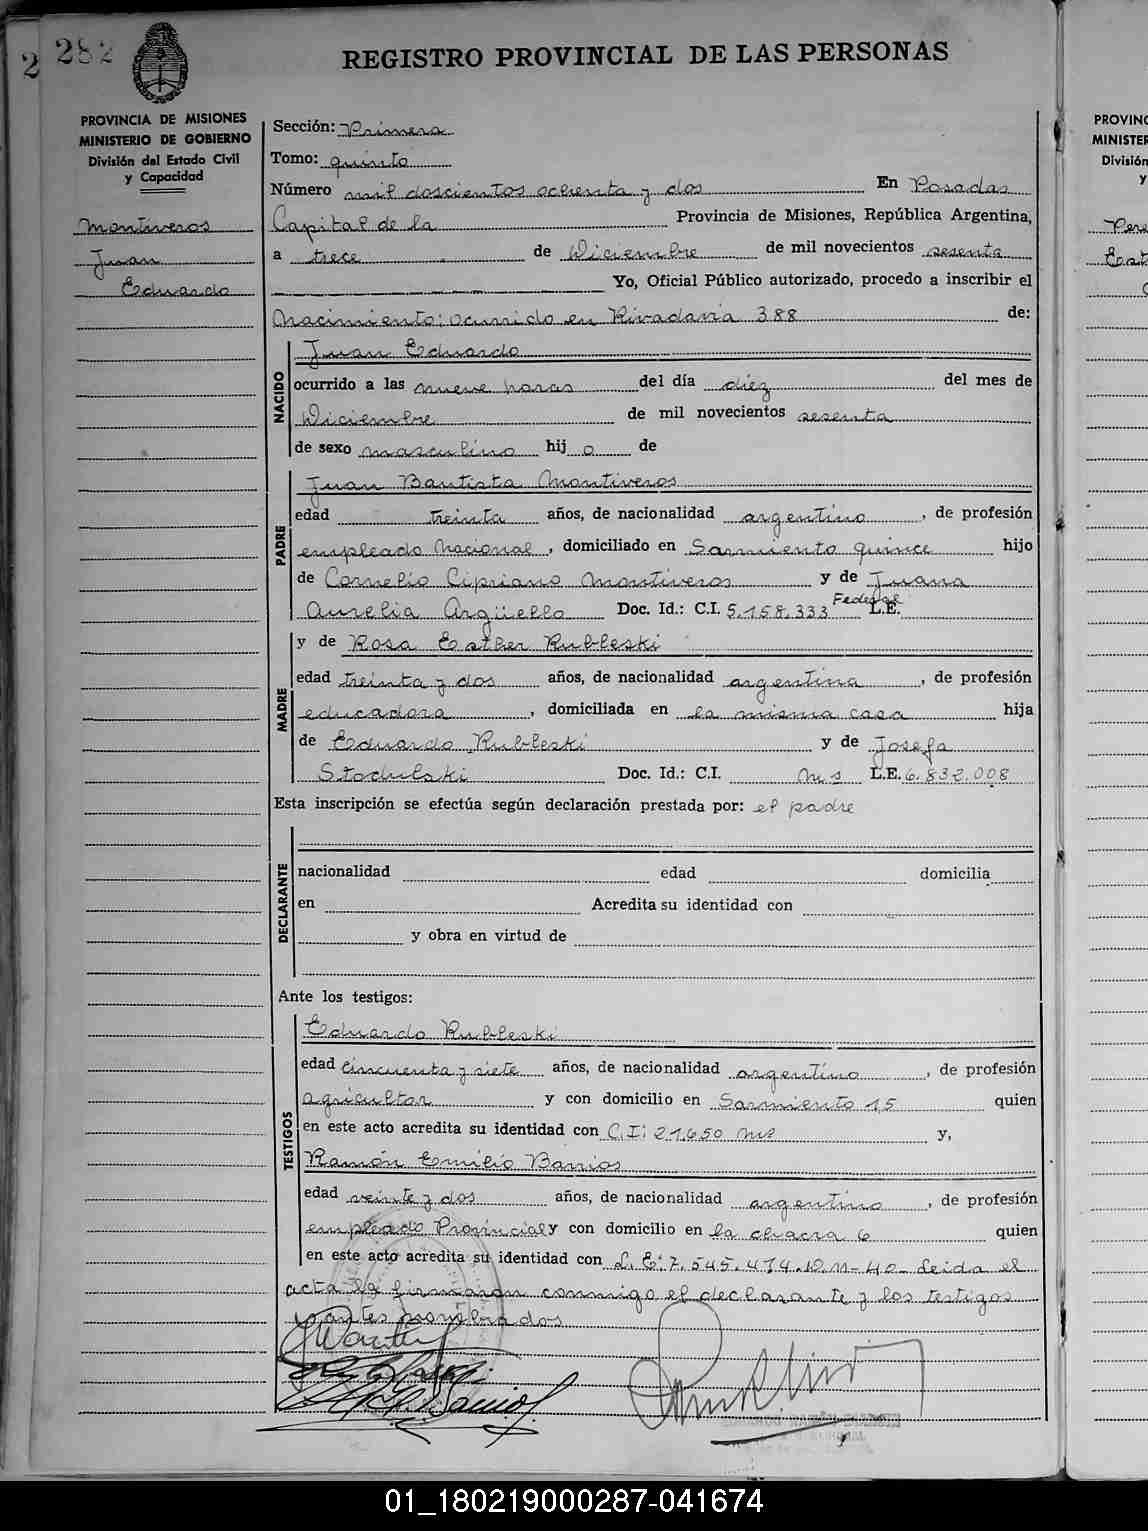 2
282
REGISTRO PROVINCIAL DE LAS PERSONAS
PROVINCIA DE MISIONES
MINISTERIO DE GOBIERNO
División del Estado Civil
y Capacidad
Montiveros
Juan
Eduardo
Sección: Primera
Tomo: quinto
Número mil doscientos ochenta y dos En Posadas
Capital de la Provincia de Misiones, República Argentina,
a trece de Diciembre de mil novecientos sesenta
Yo, Oficial Público autorizado, procedo a inscribir el
Nacimiento; ocurrido en Rivadavia 388 de:
NACIDO
Juan Eduardo
ocurrido a las nueve horas del día diez del mes de
Diciembre de mil novecientos sesenta
de sexo masculino hij o de
PADRE
Juan Bautista Montiveros
edad treinta años, de nacionalidad argentino, de profesión
empleado Nacional, domiciliado en Sarmiento quince hijo
de Cornelio Cipriano Montiveros y de Juana
Aurelia Argüello Doc. Id.: C.I. 5.158.333 Federal L.E.
MADRE
y de Rosa Esther Rubleski
edad treinta y dos años, de nacionalidad argentina, de profesión
educadora, domiciliada en la misma casa hija
de Eduardo Rubleski y de Josefa
Stodulski Doc. Id.: C.I. Ms L.E. 6.832.008
Esta inscripción se efectúa según declaración prestada por: el padre
DECLARANTE
nacionalidad edad domicilia
en Acredita su identidad con
y obra en virtud de
Ante los testigos:
TESTIGOS
Eduardo Rubleski
edad cincuenta y siete años, de nacionalidad argentino, de profesión
agricultor y con domicilio en Sarmiento 15 quien
en este acto acredita su identidad con C.I: 21.650 Ms y,
Ramón Emilio Barrios
edad veinte y dos años, de nacionalidad argentino, de profesión
empleado Provincial y con domicilio en la chacra 6 quien
en este acto acredita su identidad con L.E: 7.545.474.D.M-40- Leida el
acta la firmaron conmigo el declarante y los testigos
antes nombrados
PROVINC
MINISTER
División
y
01_180219000287-041674